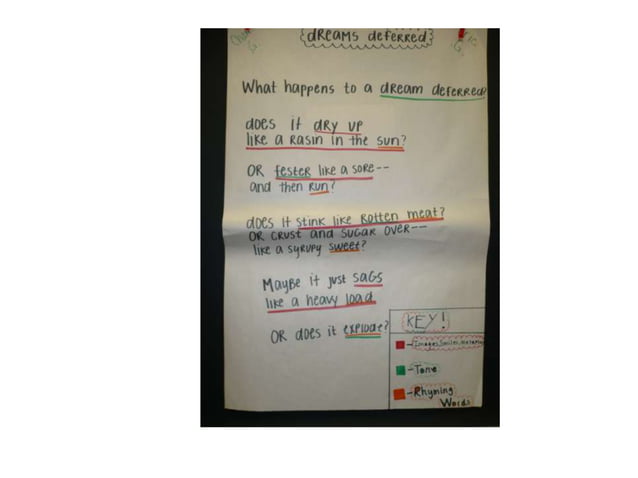 dReams deferred
What happens to a dream deferred?
does it dRy up
like a Rasin in the sun?
OR fester like a sore--
and then Run?
does it stink like Rotten meat?
OR CRUST and SUGAR OVER--
like a syRupy sweet?
Maybe it just sags
like a heavy load
OR does it explode?
KEY!
- Tone
- Rhyming
Words